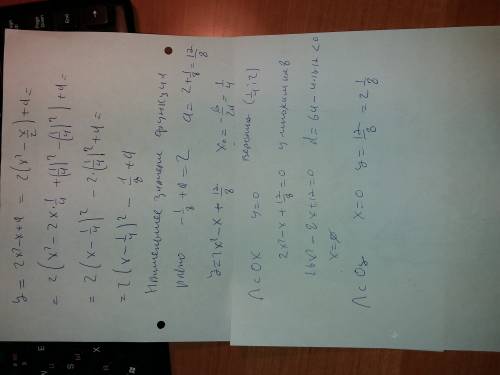 y = 2x² - x + a = 2(x² - x/2) + a =
= 2(x² - 2x·1/4 + (1/4)² - (1/4)²) + a =
= 2(x - 1/4)² - 2·(1/4)² + a =
= 2(x - 1/4)² - 1/8 + a
Наименьшее значение функции
равно -1/8 + a = 2 a = 2 + 1/8 = 17/8
y = 2x² - x + 17/8 x₀ = -b/2a = 1/4
вершина (1/4; 2)
∧ с OX y = 0
2x² - x + 17/8 = 0 умножим на 8
16x² - 8x + 17 = 0 d = 64 - 4·16·17 < 0
x = ∅
∧ с Oy x = 0 y = 17/8 = 2 1/8